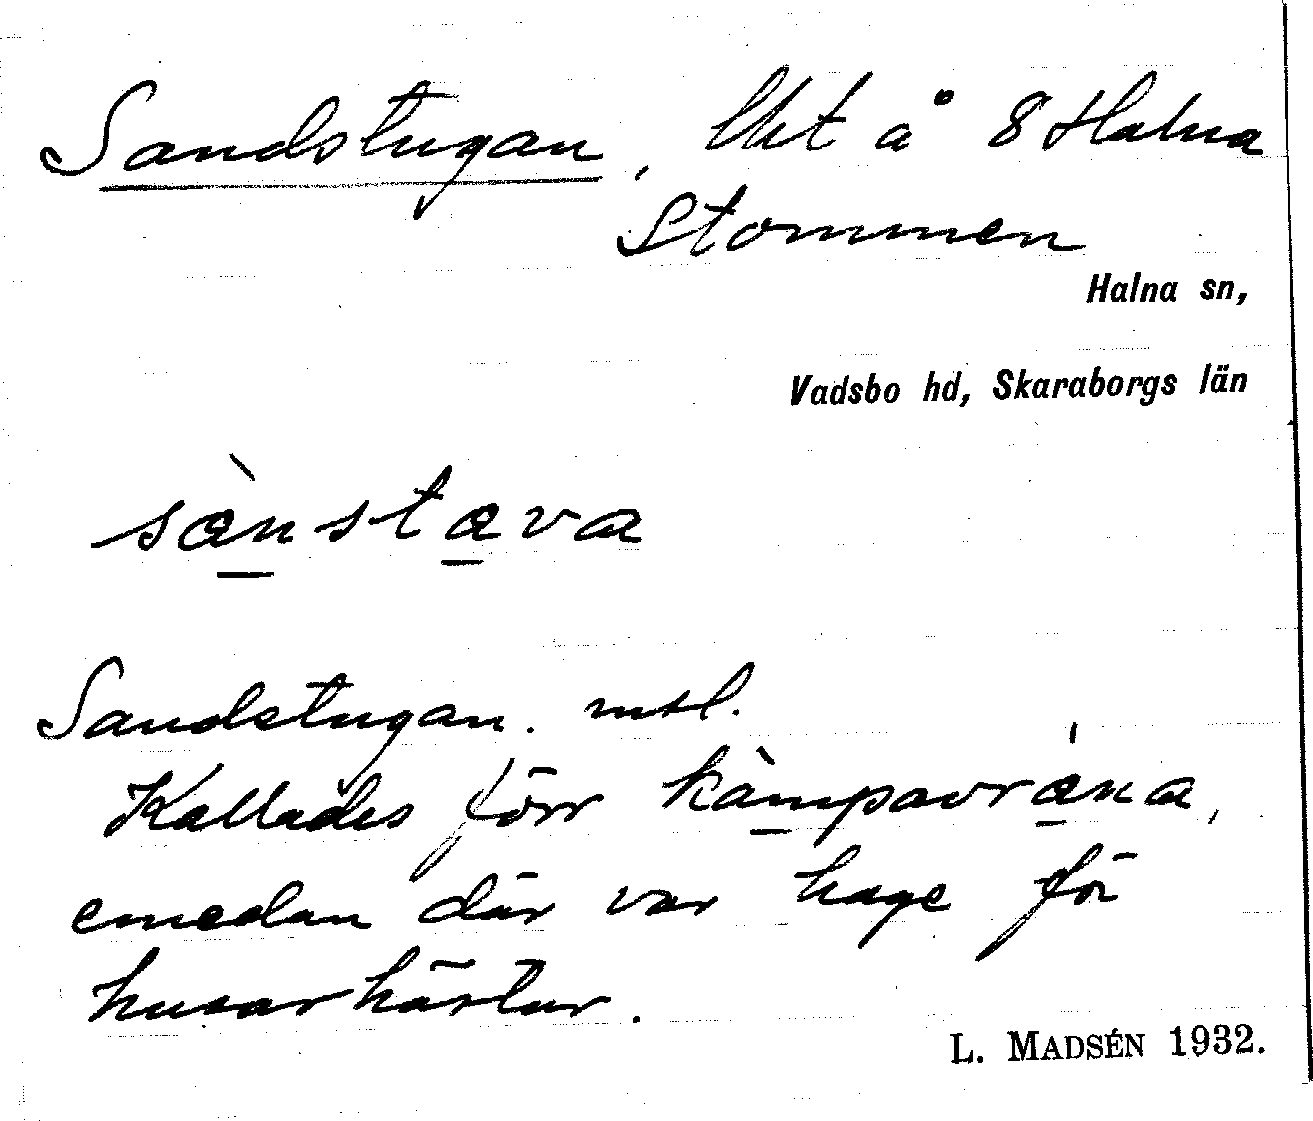 Sandstugan, lht å 8 Halna
Stommen
Halna sn,
Vadsbo hd, Skaraborgs län
sànstava
Sandstugan. mtl.
Kallades förr kàmpavrána,
emedan där var hage för
husarhästar.
L. MADSÉN 1932.